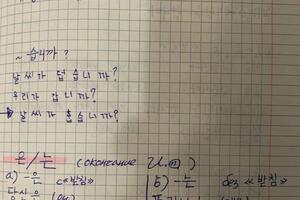 ~ 습니까 ?
날씨가 덥습니까?
우리가 갑니까?
날씨가 춥습니까?
은/는 (окончание И.п)
а) -은 с «받침» б) -는 без «받침»